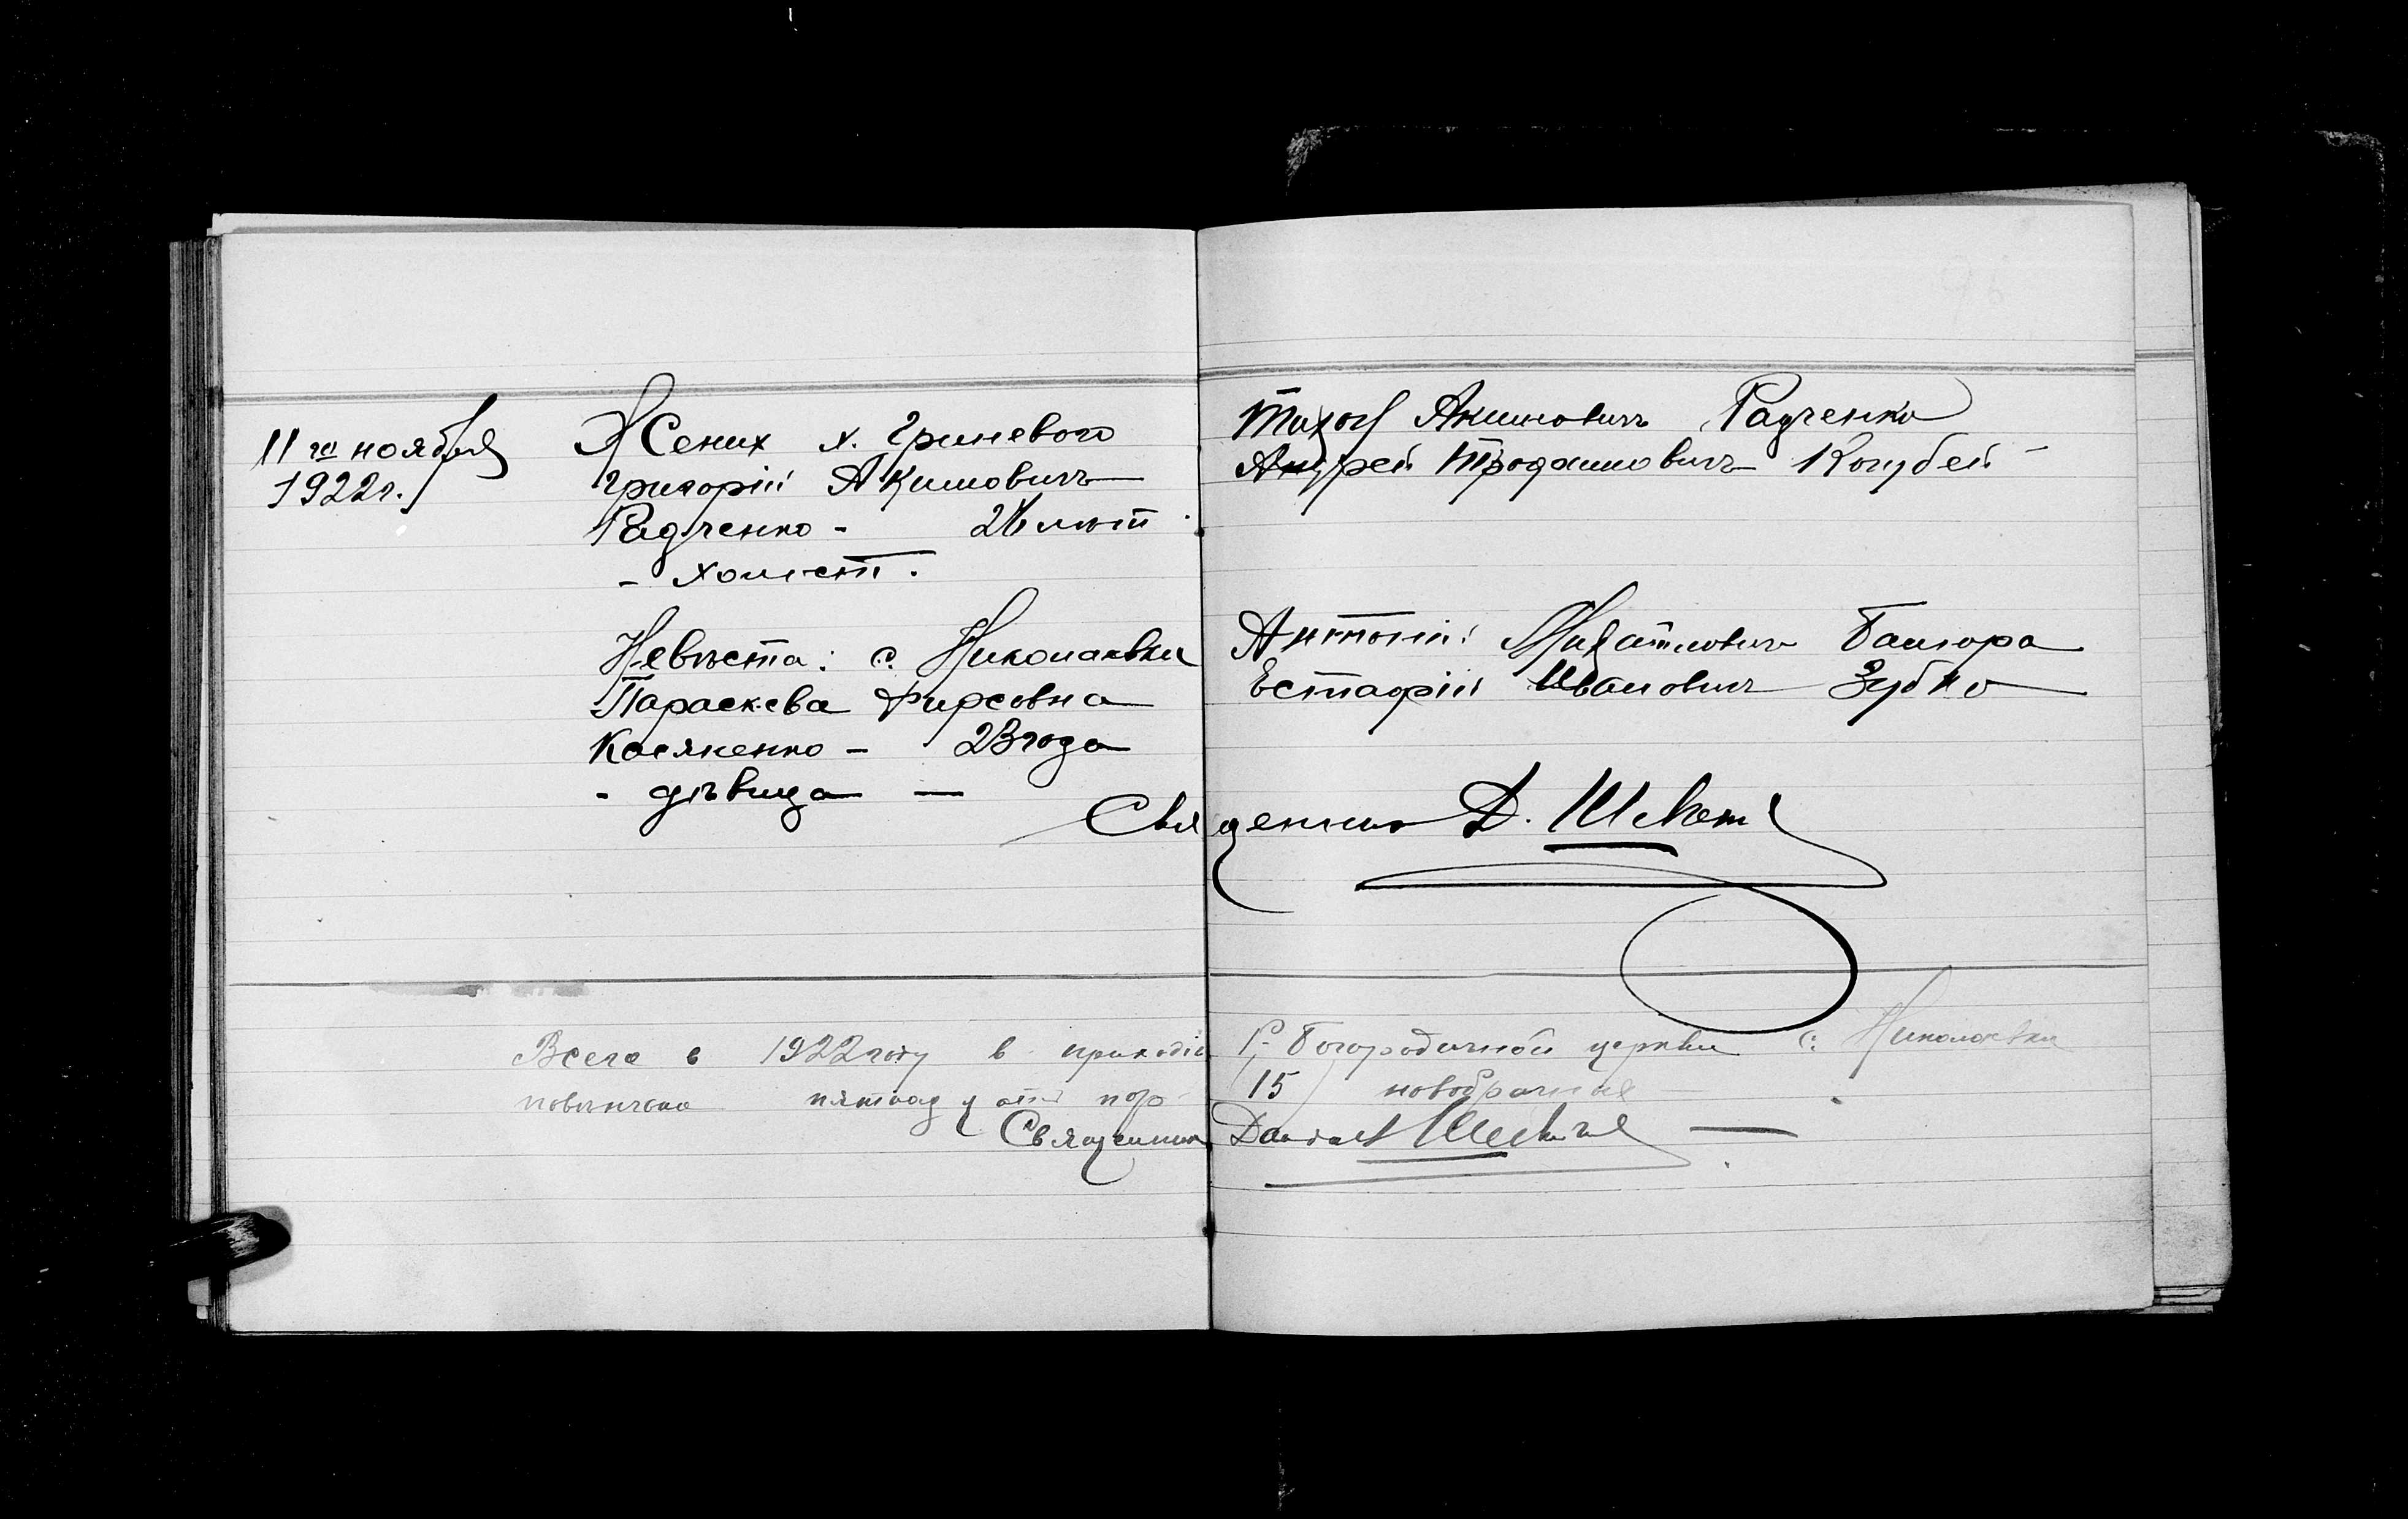 11го ноября
1922г.
Жених х. Гриневого
Григорій Акимовичъ
Радченко -
- холост.
Невѣста: с. Николаевки
Параскева Фирсовна
Касяненко - 23 года
- дѣвица -
Тихон Акимовичъ Радченко
Андрей Кочубей -
Антоній Михайлович
Евстафій Иванович Зубко
Священник Д.
Всего в 1922 году в приходѣ Р. Богородичной церкви с. Николаевки
повѣнчано пятнадцать пар 15 новобрачные
Священник